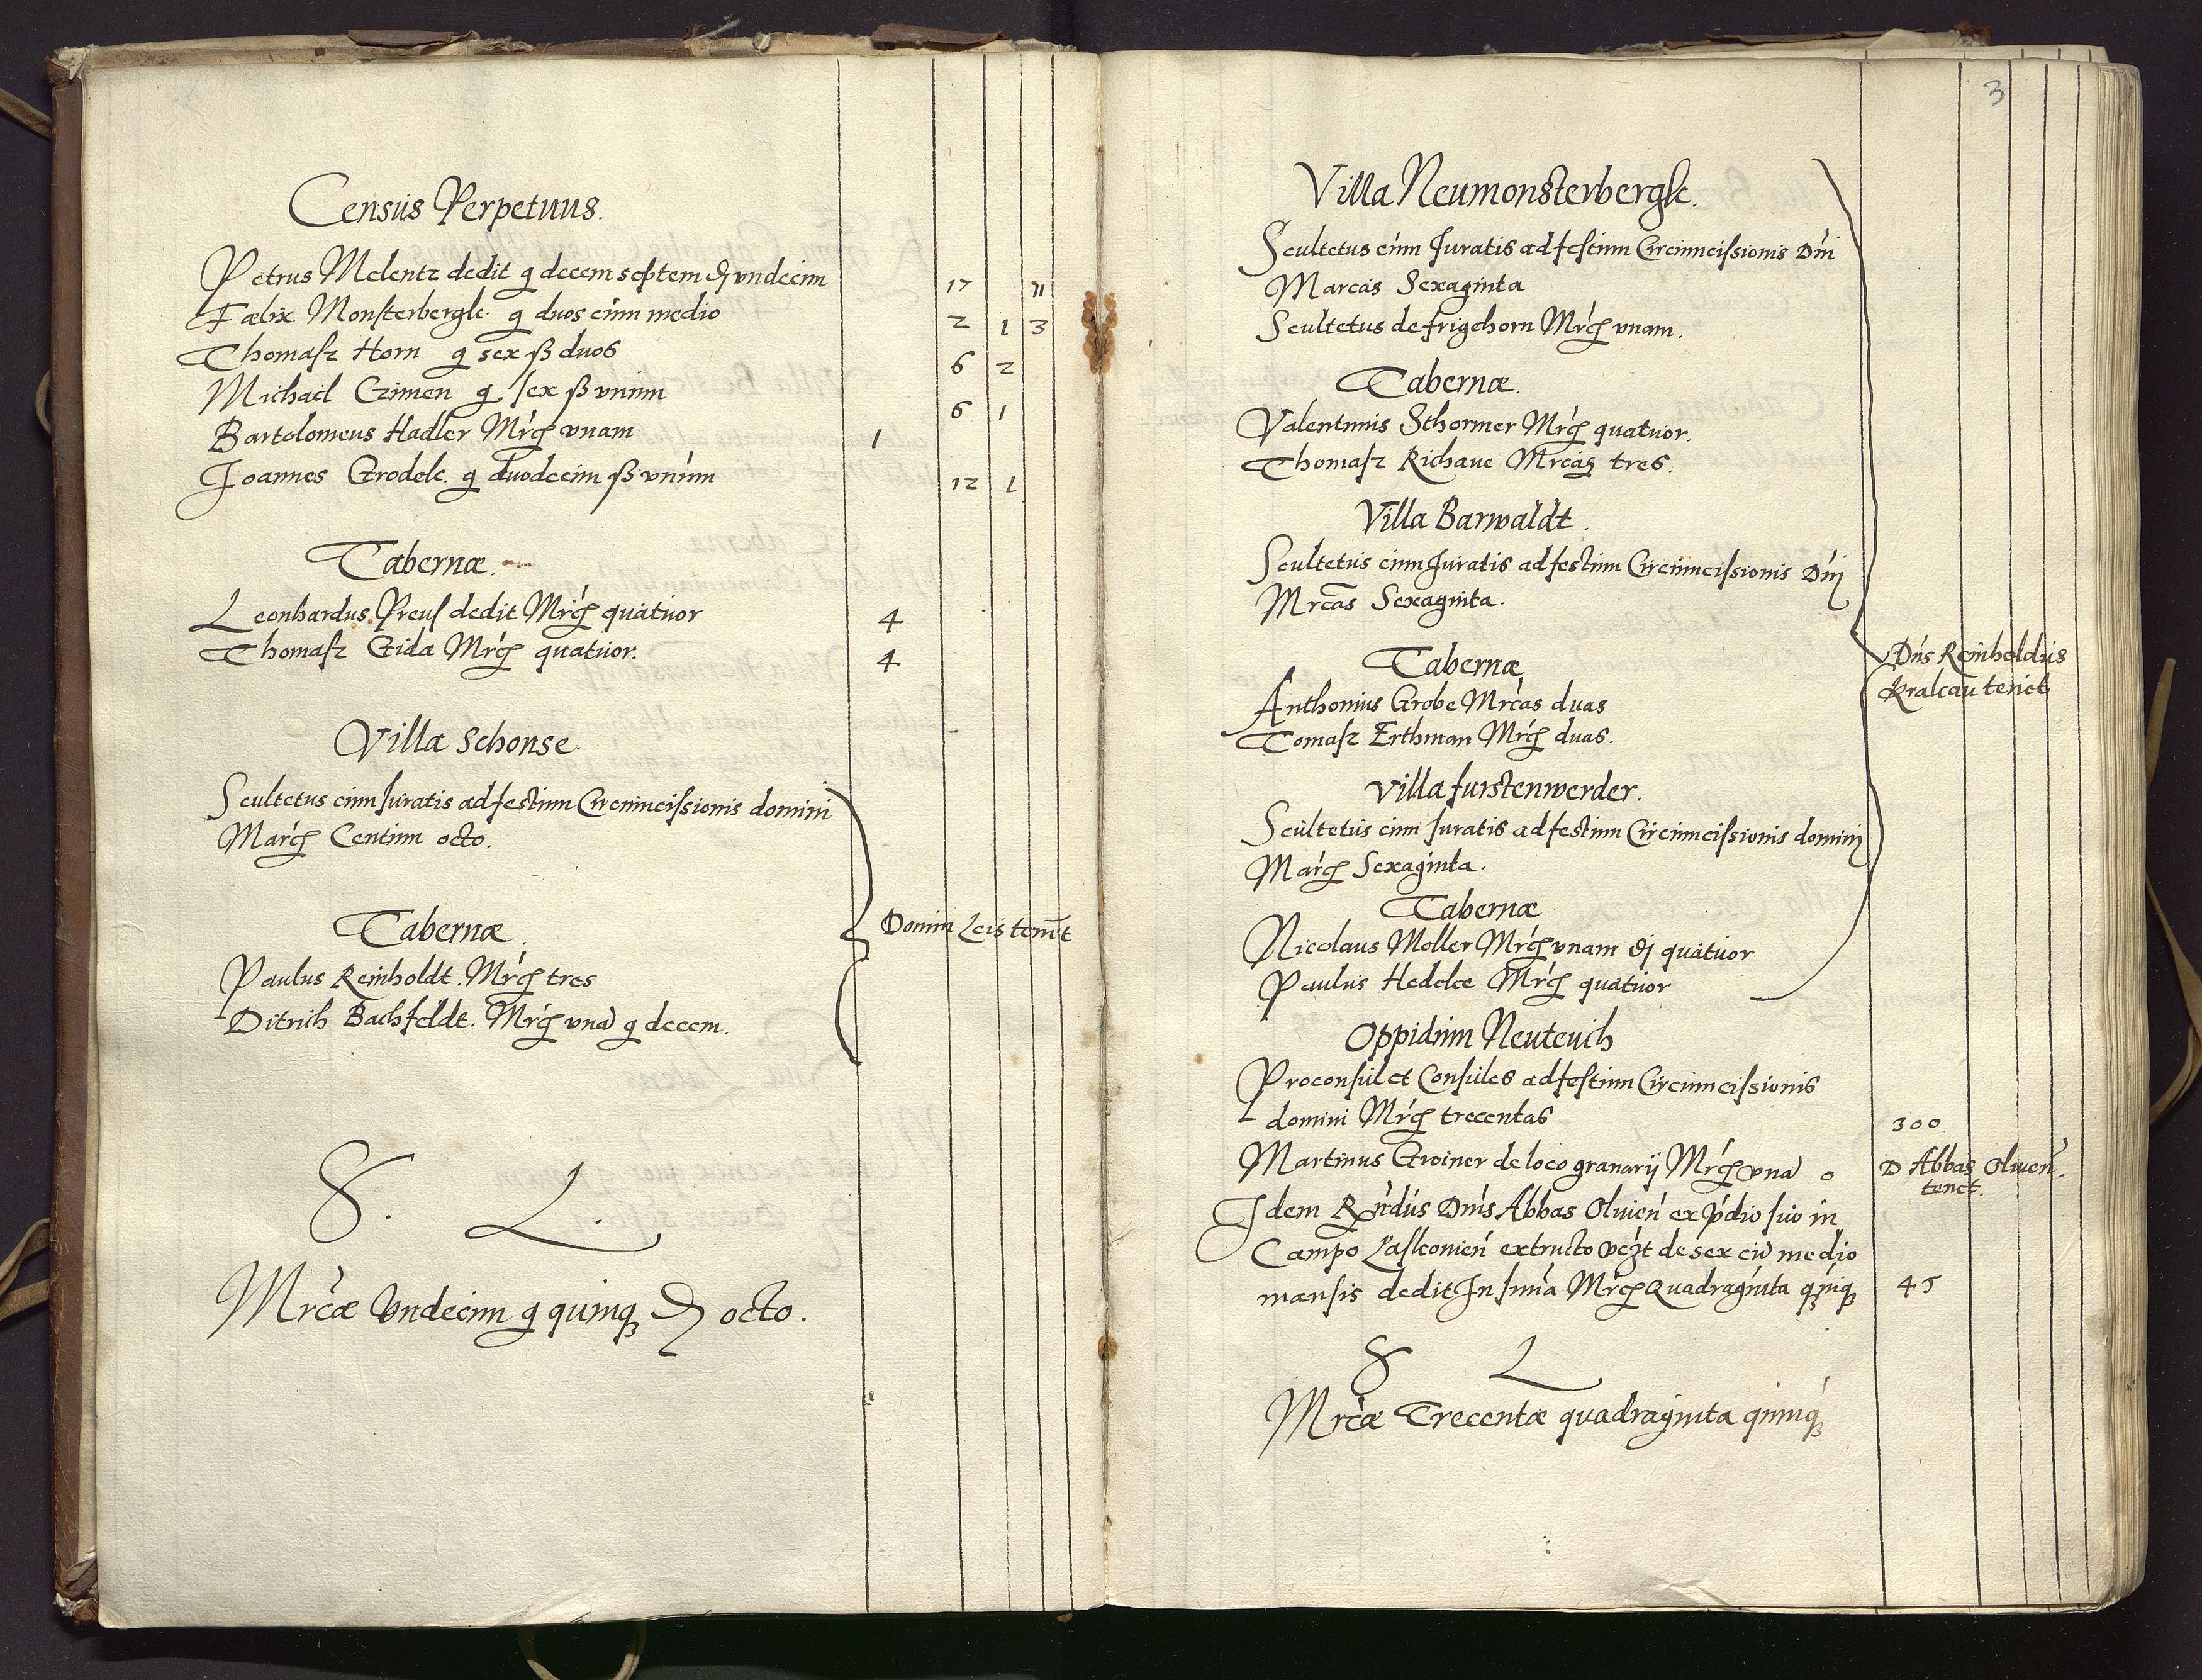 Censùs Perpetuus.
Petrus Melentz dedit g decem septem ₰ vndecim 17 11
Fabix Monsterbergk. g duos cùm medio 2 1 3
Thomasz Horn g sex ß duos 6 2
Michael Czimen g sex ß vnùm 6 1
Bartolomeus Hadler Mrcς vnam 1
Joannes Grodek. g duodecim ß vnùm 12 1
Tabernæ.
Leonhardus Preuſ dedit Mrcς quatùor 4
Thomasz Gida Mrcς quatùor. 4
Villa Schonse.
Scultetus cùm Juratis ad festùm Circùmcissionis domini
Marcς Centùm octo.
Tabernæ.
Domini Leis tenēt
Paulus Reinholdt. Mrcς tres
Ditrich Bachfeldt. Mrcς vnā g decem.
S. L.
Mrcæ Vndecim g quinqȝ ₰ octo.
3
Villa Neumonsterbergk.
Scultetus cùm Juratis ad festùm Circùmcissionis Dni
Marcas Sexaginta
Scultetus de frigehorn Mrcς vnam.
Tabernæ.
Valentinùs Sthormer Mrcς quatùor.
Thomasz Richaue Mrcas tres.
Villa Barwaldt.
Scultetùs cùm Juratis ad festùm Circùmcissionis Dnj
Mrcas Sexaginta.
Dns Reinholdùs
Krakau tenet
Tabernæ
Anthonius Grobe Mrcas duas
Tomasz Erthman Mrcς duas.
Villa furstenwerder.
Scùltetùs cùm Juratis ad festùm Circùmcissionis dominj
Marcς Sexaginta.
Tabernæ
Nicolaus Moller Mrcς vnam ₰ quatùor
Paulùs Hedeke Mrcς quatùor
Oppidùm Neuteùch
Proconsùl et Consùles ad festùm Circùmcissionis
domini Mrcς trecentas 300
Martinùs Greiner de loco granarij Mrcς vnā o D Abbas Oliuen.
tenet.
Idem Rndùs Dns Abbas Oliùen ex pdio sùo in
Campo Laskonien extructo de sex cū medio
mansis dedit In sùma Mrcς Quadraginta qùinqȝ 45
S L
Mrcæ Trecentæ quadraginta qùinqȝ